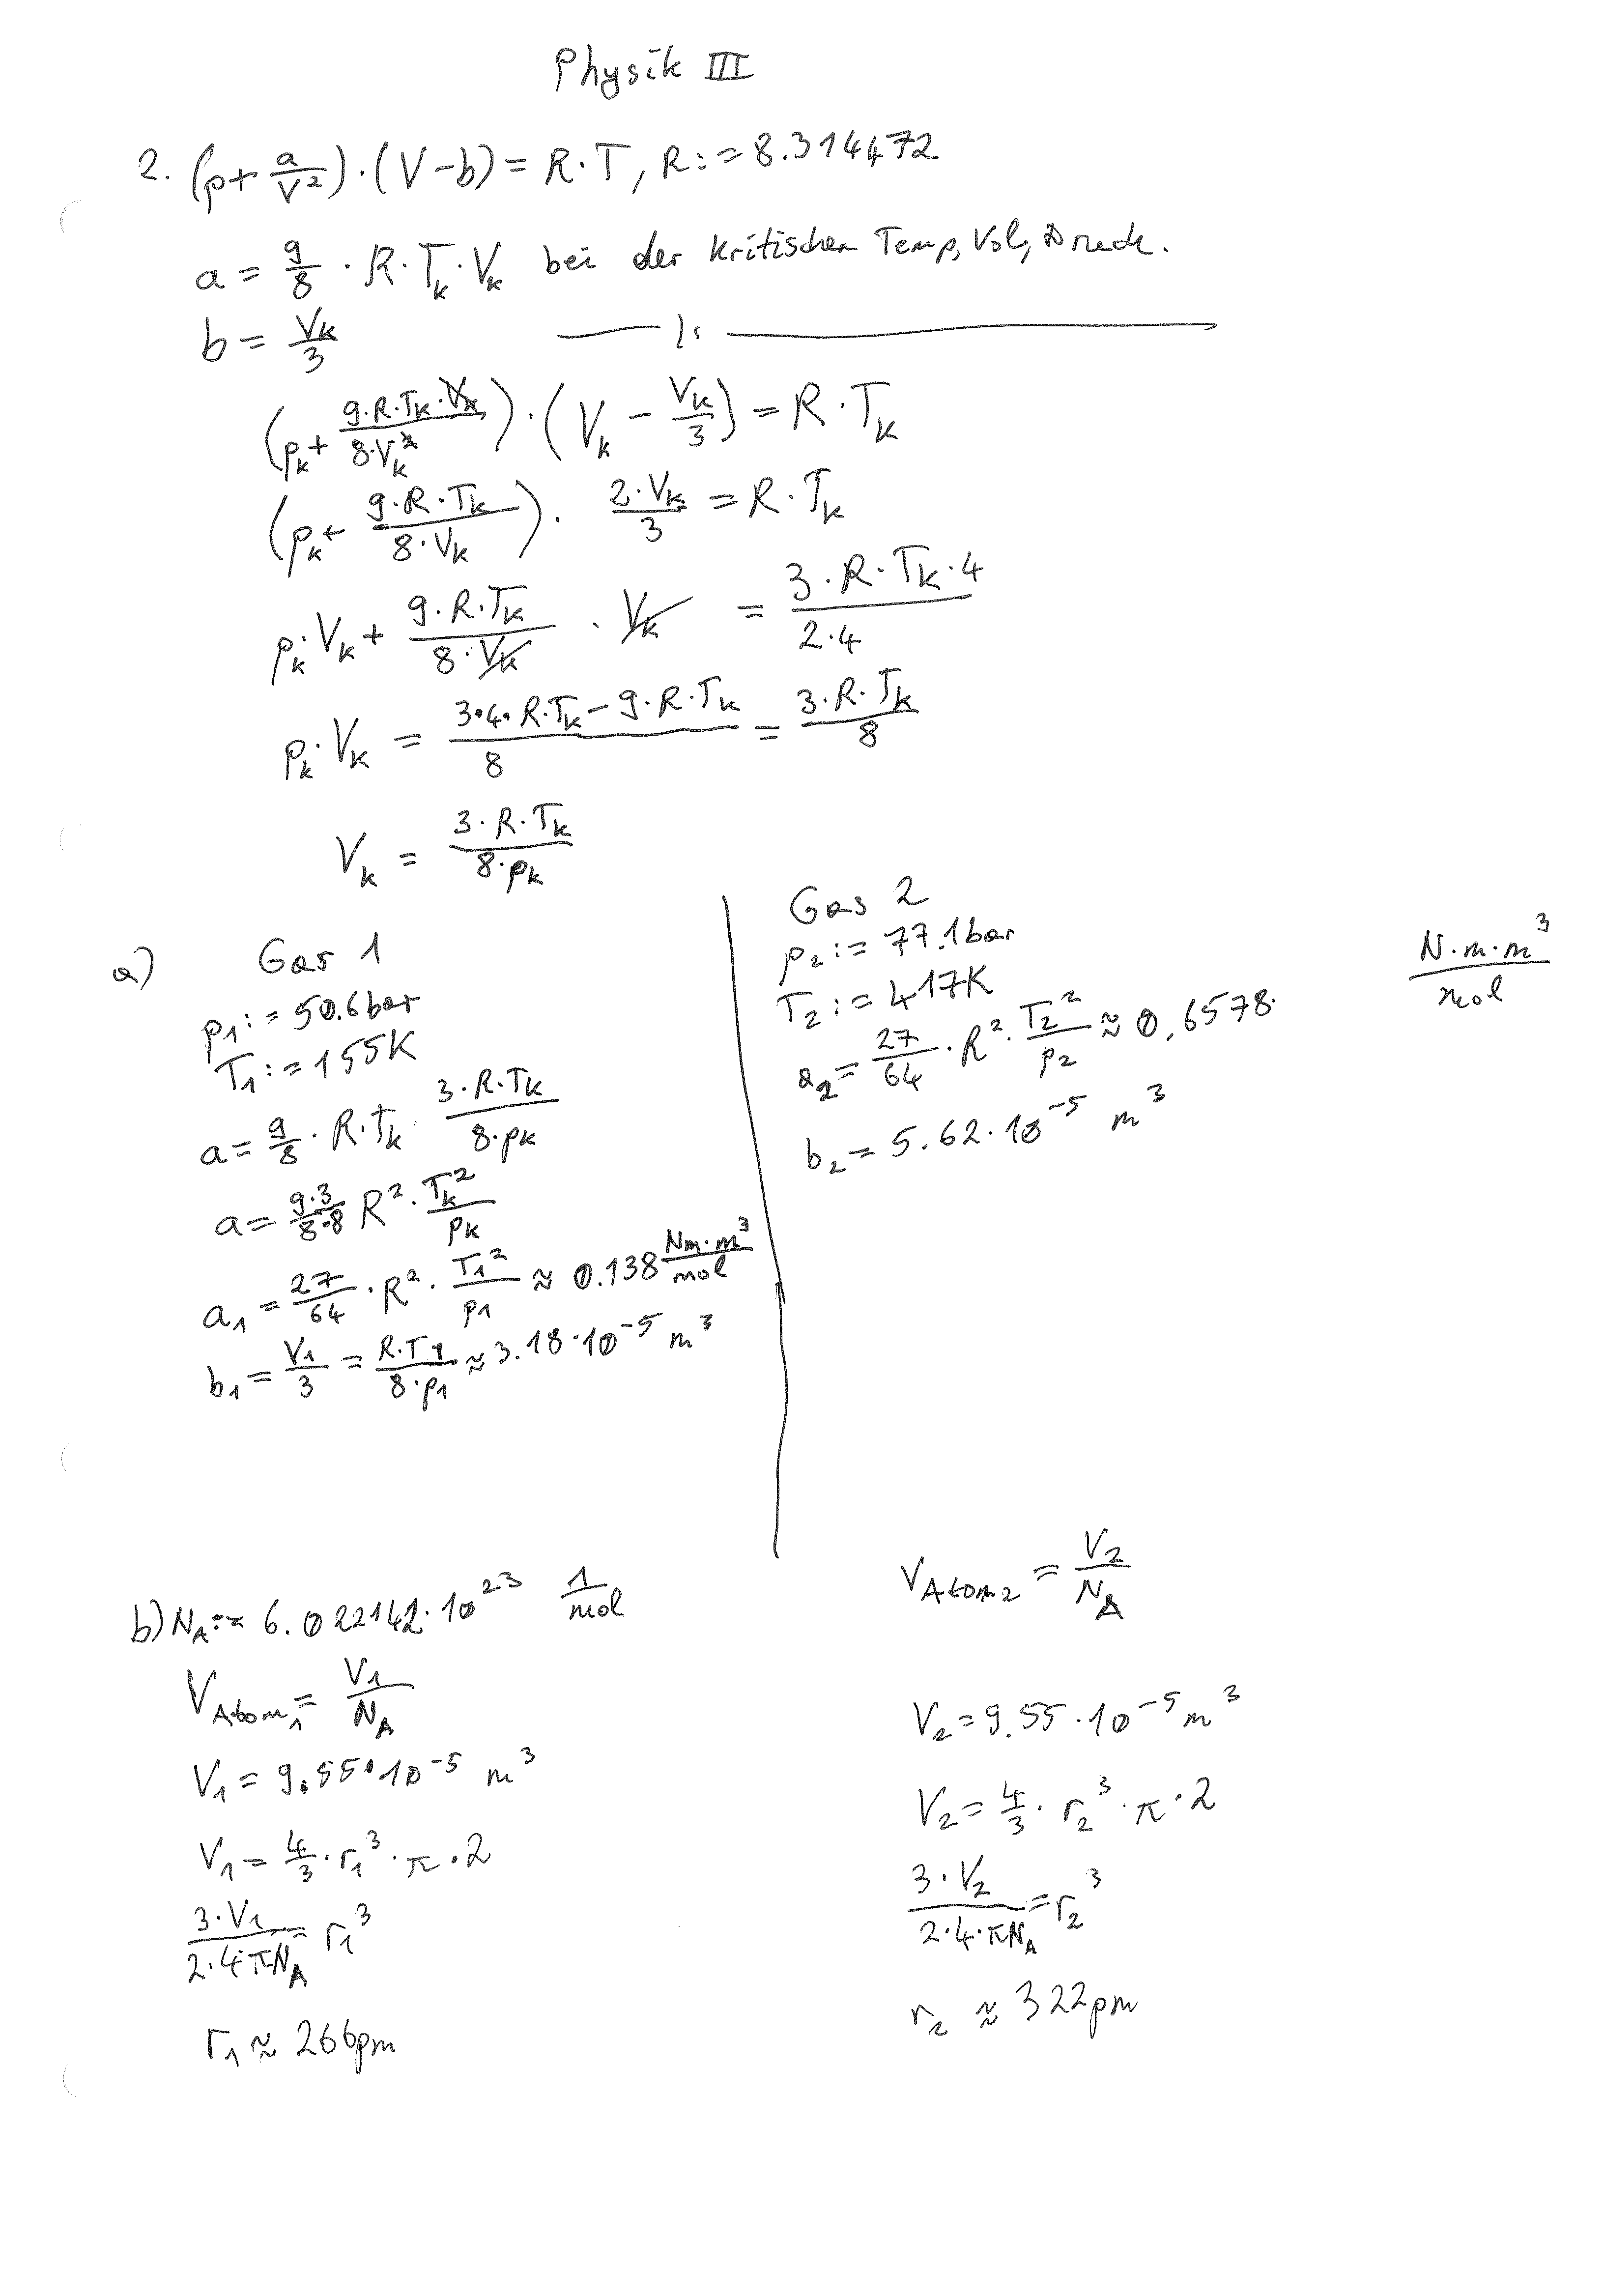 Physik III
2. (p + a/V²) · (V − b) = R · T, R := 8.314472
a = 9/8 · R · T_k · V_k bei der kritischen Temp, Vol, Druck.
b = V_k/3
(p_k + 9·R·T_k·V_k / 8·V_k²) · (V_k − V_k/3) = R · T_k
(p_k + 9·R·T_k / 8·V_k) · 2·V_k/3 = R · T_k
p_k · V_k + 9·R·T_k / 8·V_k · V_k = 3·R·T_k·4 / 2·4
p_k · V_k = 3·4·R·T_k − 9·R·T_k / 8 = 3·R·T_k / 8
V_k = 3·R·T_k / 8·p_k
a) Gas 1
p₁ := 50.6 bar
T₁ := 155K
a = 9/8 · R · T_k · 3·R·T_k / 8·p_k
a = 9·3/8·8 R² · T_k²/p_k
a₁ = 27/64 · R² · T₁²/p₁ ≈ 0.138 Nm·m³/mol
b₁ = V₁/3 = R·T₁ / 8·p₁ ≈ 3.18 · 10⁻⁵ m³
Gas 2
p₂ := 77.1 bar
T₂ := 417K
a₂ = 27/64 · R² · T₂²/p₂ ≈ 0,6578 · N·m·m³/mol
b₂ = 5.62 · 10⁻⁵ m³
b) N_A := 6.022142 · 10²³ 1/mol
V_Atom₁ = V₁/N_A
V₁ = 9.55 · 10⁻⁵ m³
V₁ = 4/3 · r₁³ · π · 2
3·V₁ / 2·4·πN_A = r₁³
r₁ ≈ 266pm
V_Atom₂ = V₂/N_A
V₂ = 9.55 · 10⁻⁵ m³
V₂ = 4/3 · r₂³ · π · 2
3·V₂ / 2·4·πN_A = r₂³
r₂ ≈ 322pm